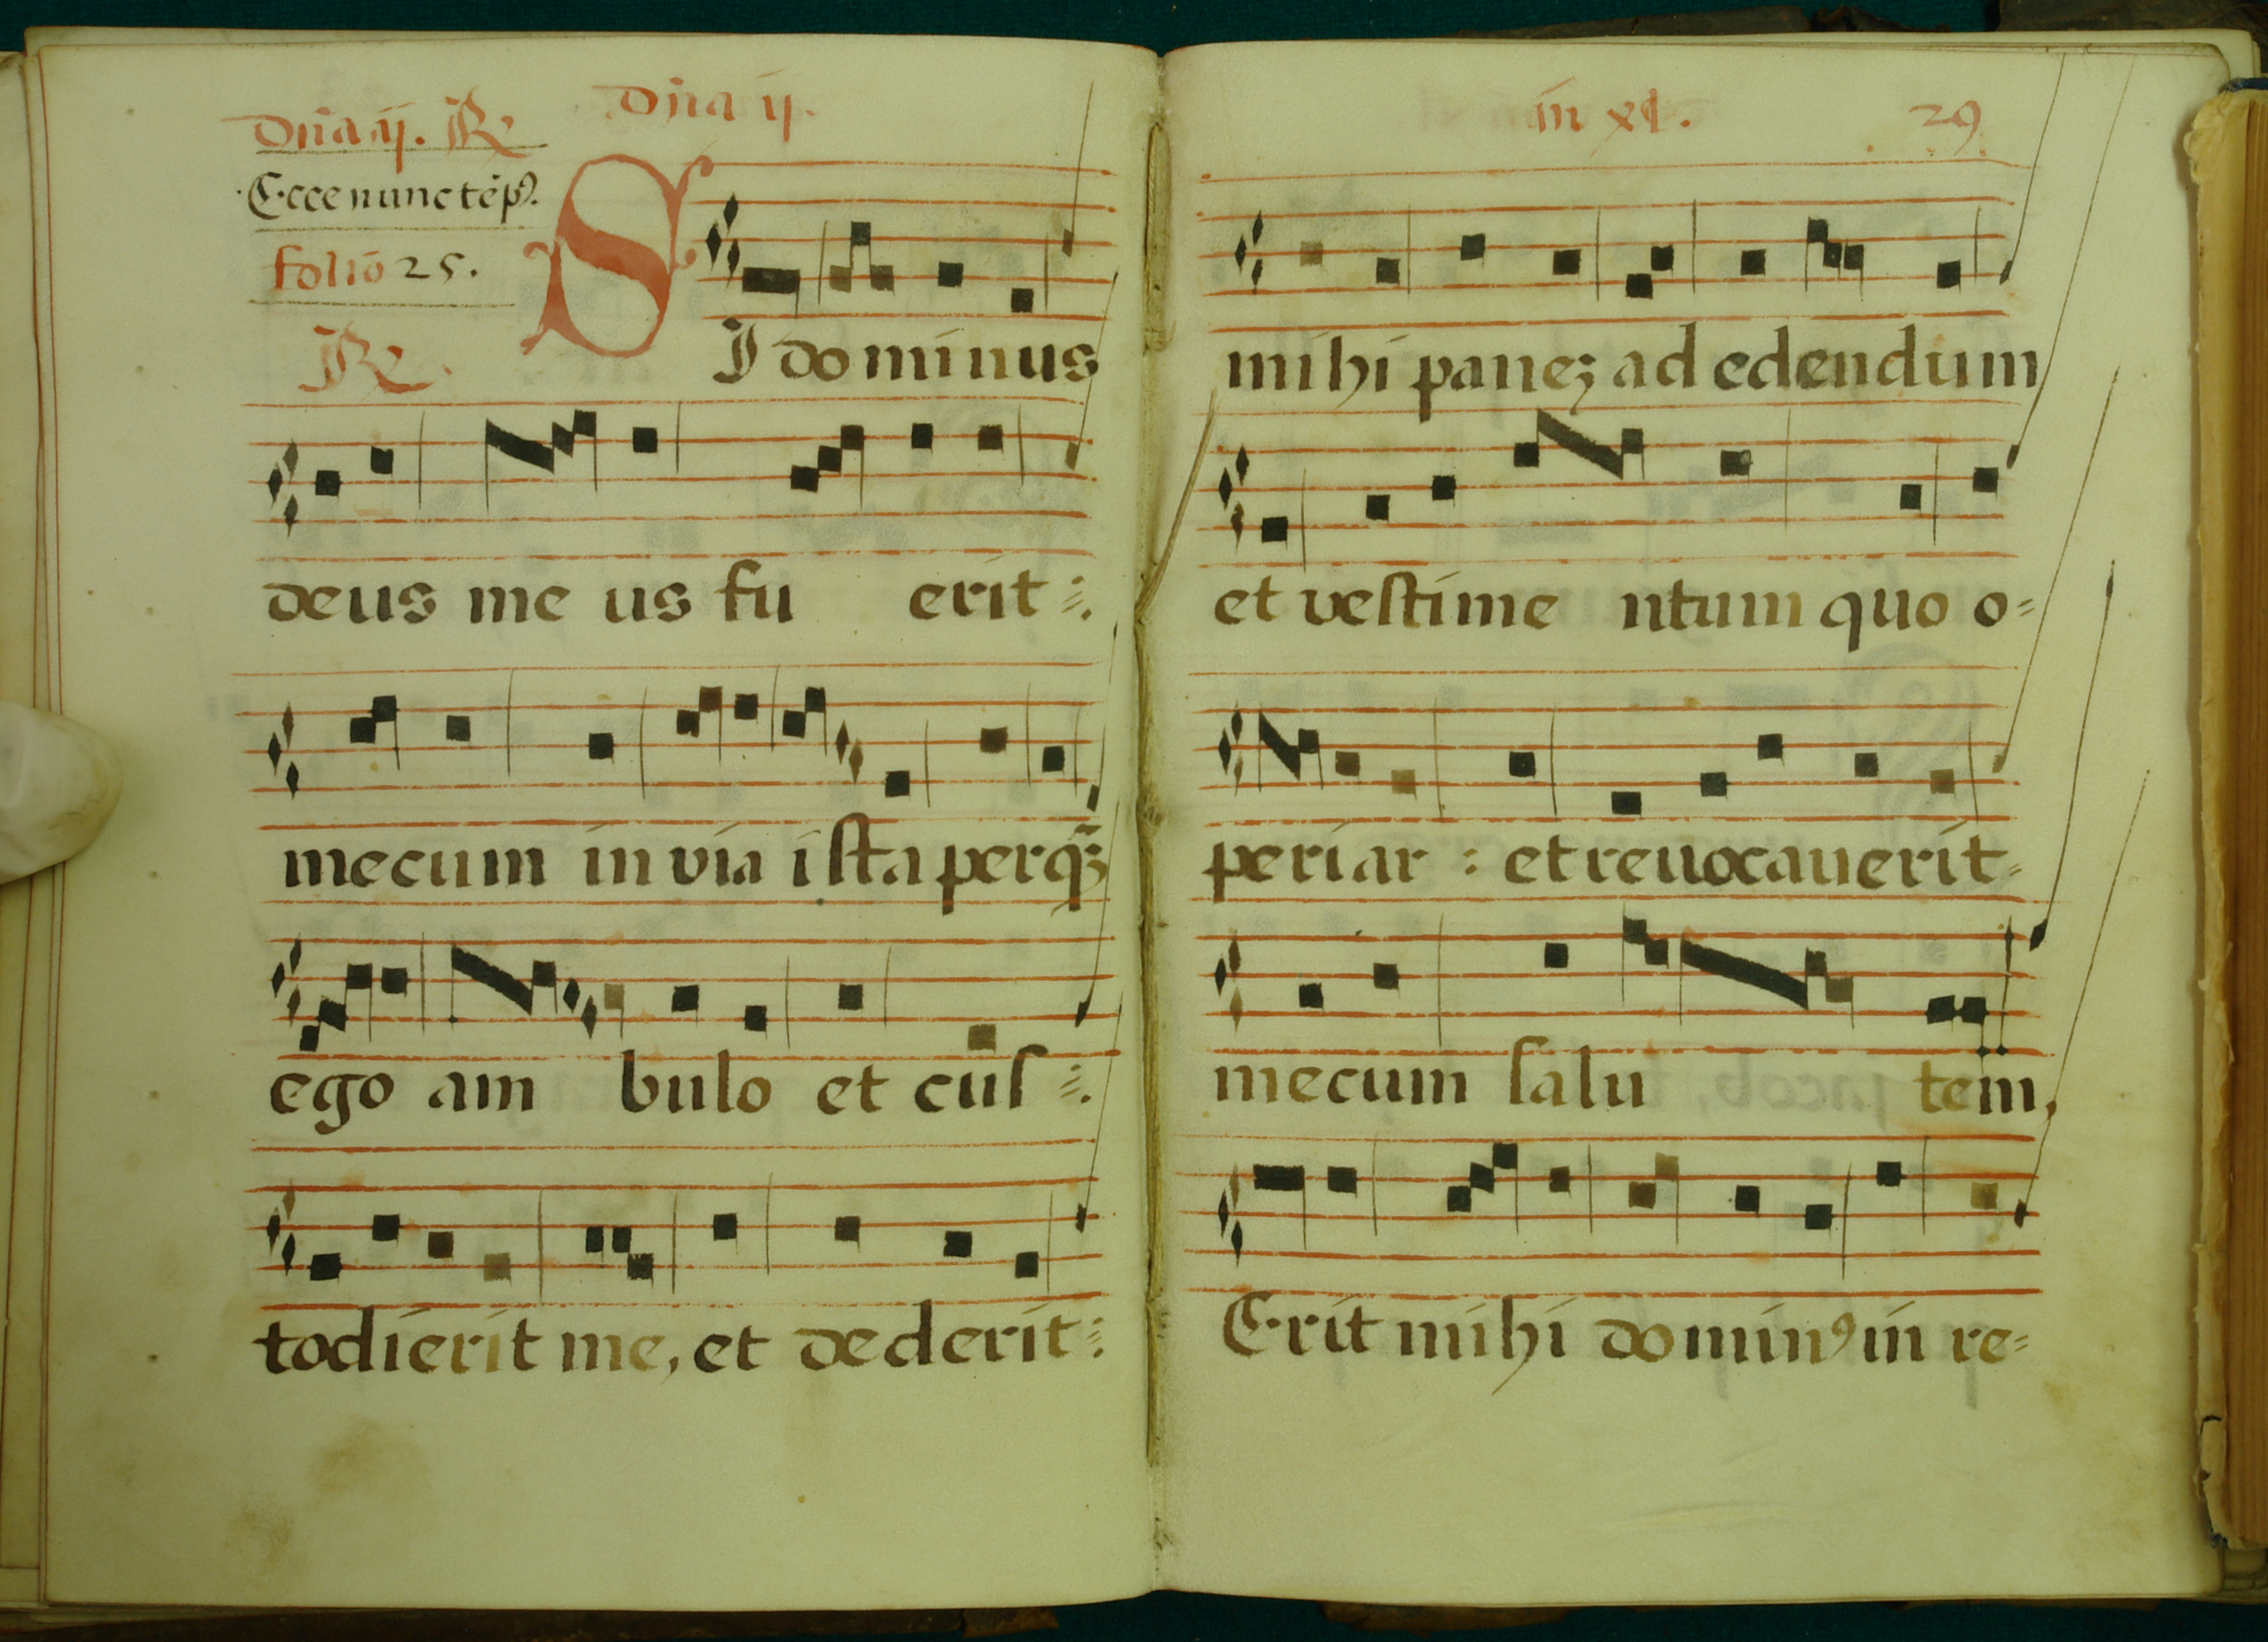 Dña ij. R̃
Dña ij.
Ecce nunc tẽp⁹.
folio 25.
R̃.
SI dominus
deus me us fu erit
mecum in via ista per q̃ȝ
ego am bulo et cus
todierit me, et dederit
in xl. 29
mihi paneȝ ad edendum
et vestime ntum quo o-
periar : et reuocauerit
mecum salu tem,
Erit mihi domin⁹ in re-